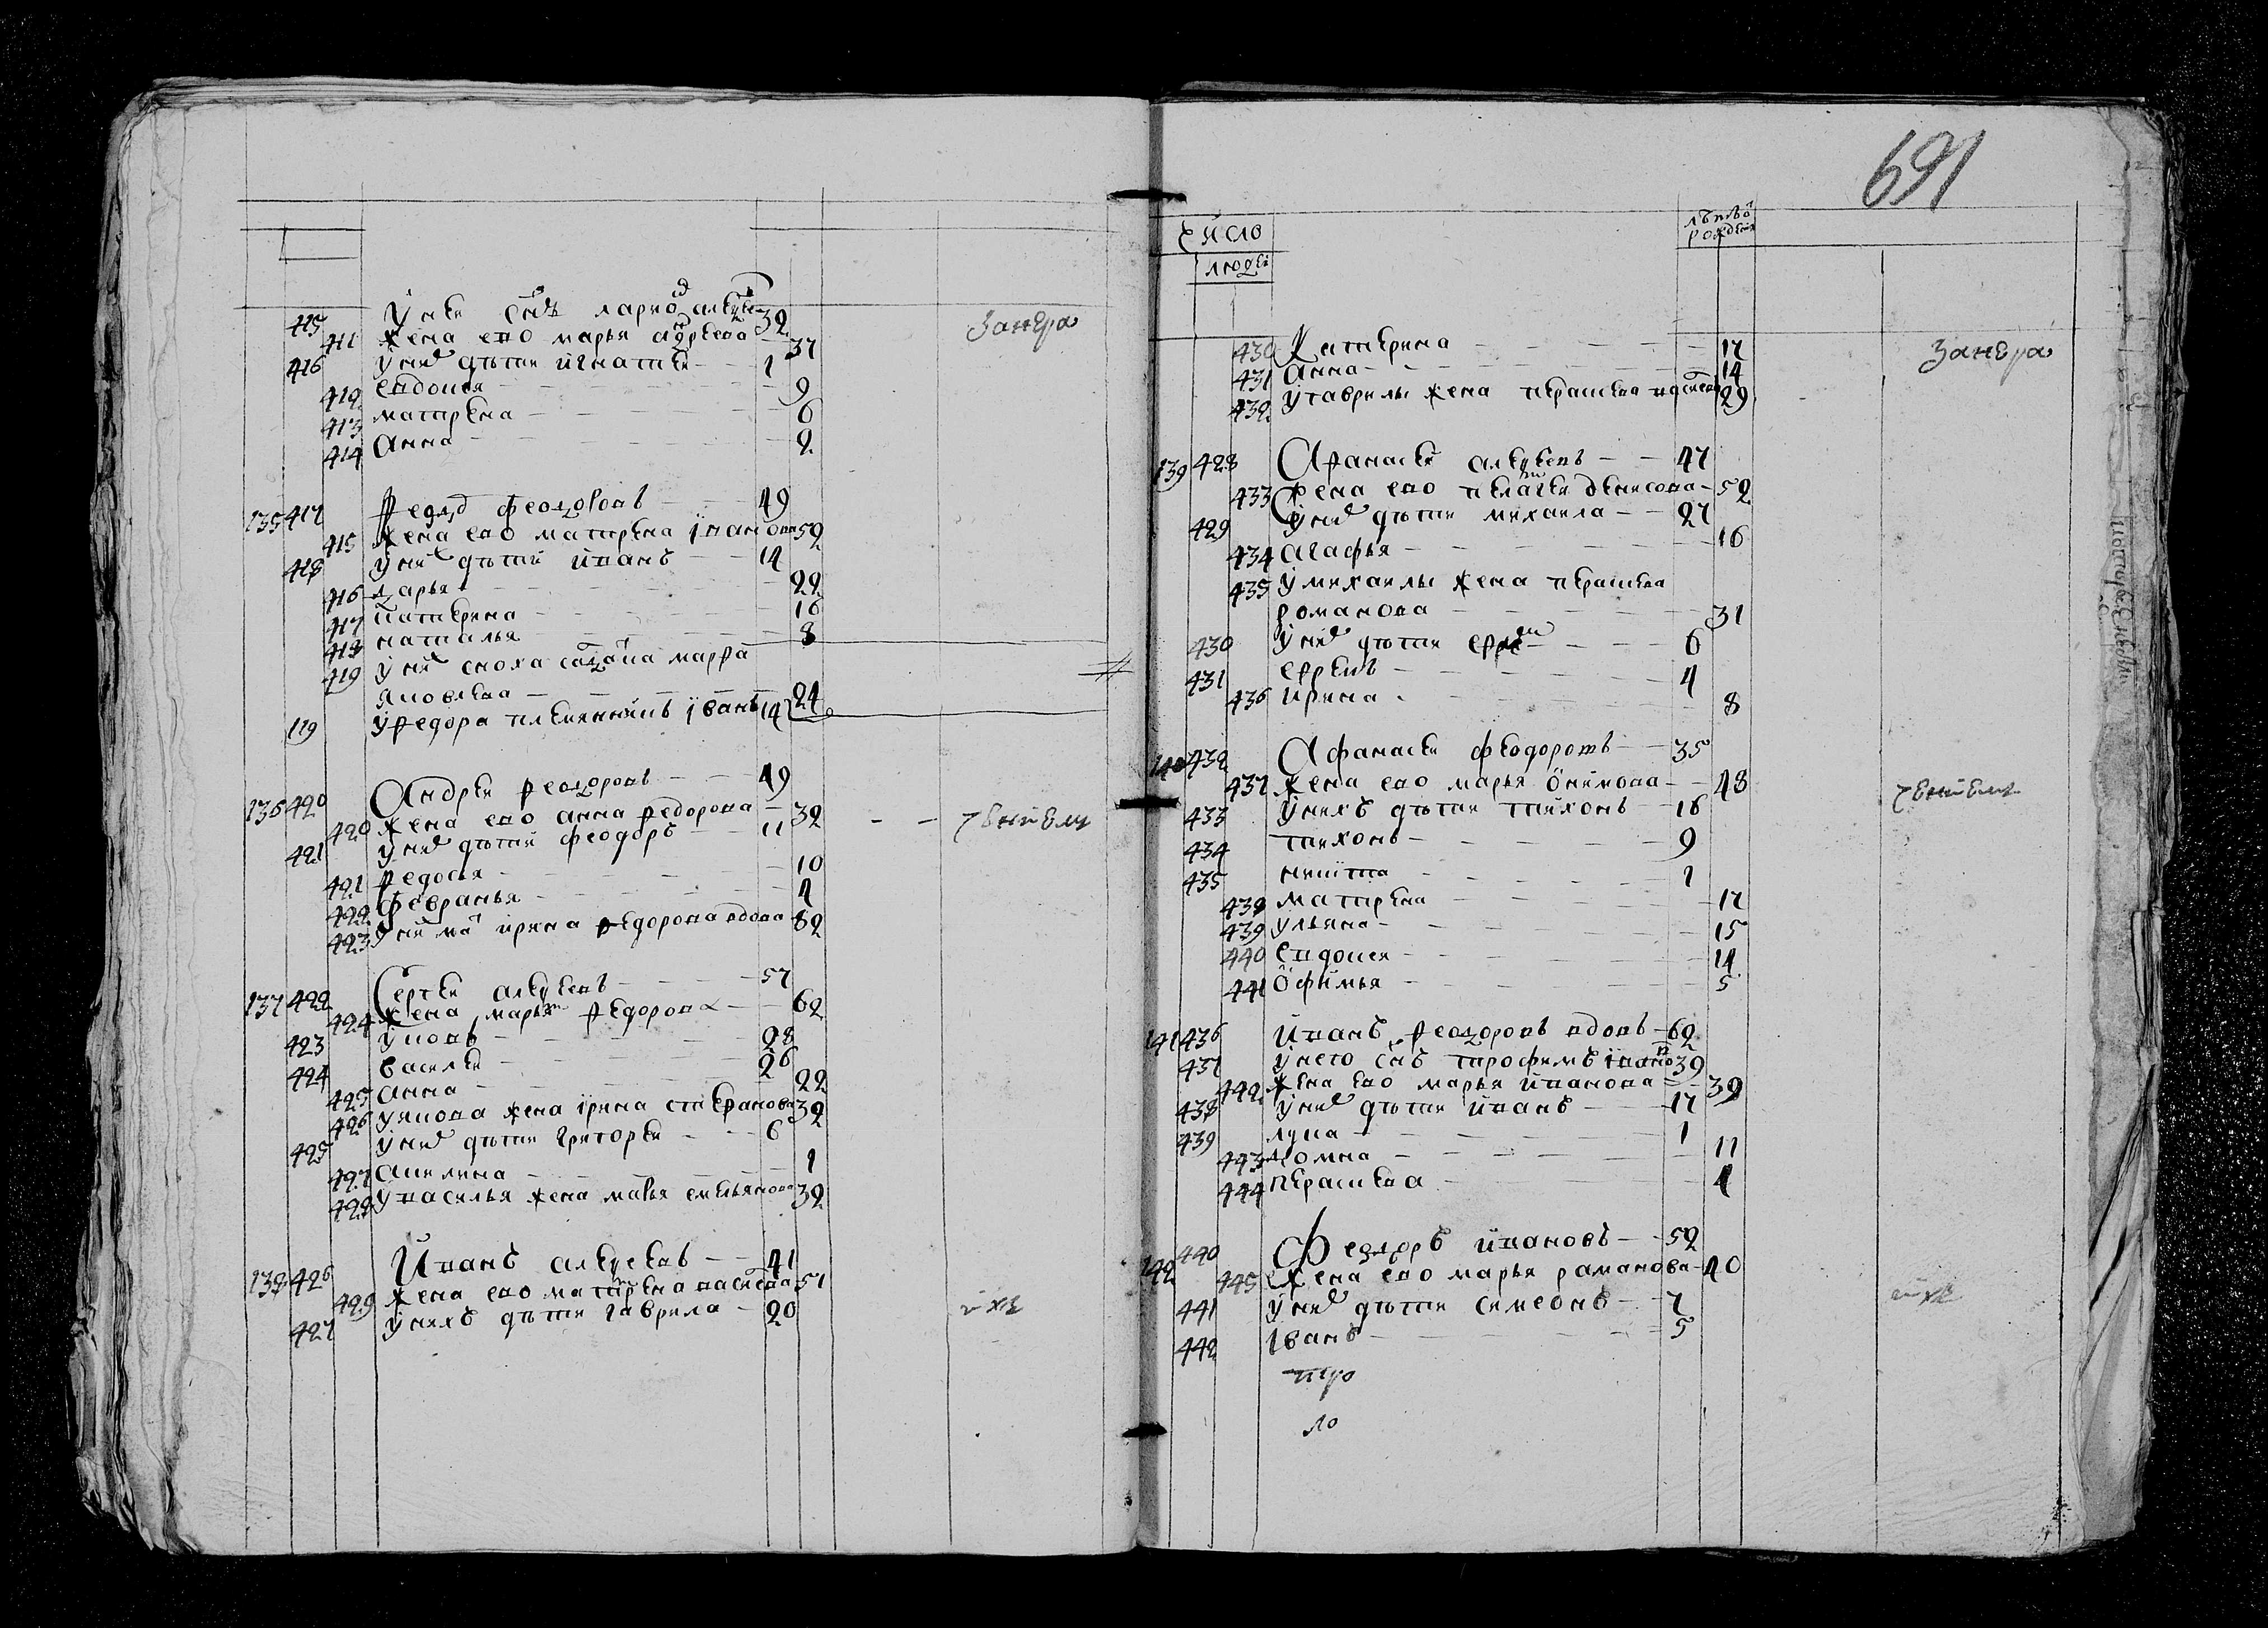 415 У неи сынъ ларионъ алеѯеевъ 32
411 жена ево марья андреева 37
416 у нихъ дѣти игнатеи 1
412 евдокея 9
413 матрена 6
414 Анна 2
135 417 Ѳедоръ феодоровъ 49
415 жена ево матрена iванова 52
418 у нихъ дѣти иванъ 14
416 дарья 22
417 катерина 16
418 наталья 8
419 у нихъ сноха салдатка марѳа
яковлева 24
419 У ѳедора племянникъ iванъ 14
136 420 Андреи ѳеодоровъ 49
420 жена ево анна ѳедорова 32
421 у нихъ дѣти феодоръ 11
421 ѳедосья 10
422 Февранья 4
423 У них мать ирина ѳедорова вдова 82
137 422 Сергеи алеѯеевъ 57
424 жена марья ѳедорова 62
423 Яковъ 28
424 василеи 26
425 анна 22
426 У якова жена iрина стеѳанова 32
425 у нихъ дѣти григореи 6
427 акилина 1
428 У василья жена марья емельянова 32
138 426 Иванъ алеѯеевъ 41
429 жена ево матрена васильева 51
427 у нихъ дѣти гаврила 20
691
число
людеи
лѣтъ от
рождения
430 Катерина 17
431 Анна 14
432 У гаврилы жена прасковья васильева 29
139 428 Аѳанасеи алеѯеевъ 47
433 жена ево пелагея денисова 52
429 у нихъ дѣти михаила 27
434 агафья 16
435 У михаилы жена прасковья
романова 31
430 у нихъ дѣти 6
431 еѳремъ 4
436 ирина 8
140 432 Афанасеи феодоровъ 35
437 жена ево марья онимова 48
433 у нихъ дѣти тихонъ 16
434 тихонъ 9
435 никита 1
438 матрена 17
439 ульяна 15
440 Евдокея 14
441 Офимья 5
141 436 Иванъ ѳеодоровъ вдовъ 62
437 у него сынъ трофимъ iвановъ 39
442 жена ево марья иванова 39
438 у нихъ дѣти иванъ 17
439 лука 1
443 домна 11
444 прасковья 4
142 440 Феодоръ ивановъ 52
445 жена ево марья раманова 40
441 у нихъ дѣти симеонъ 7
442 Iванъ 5